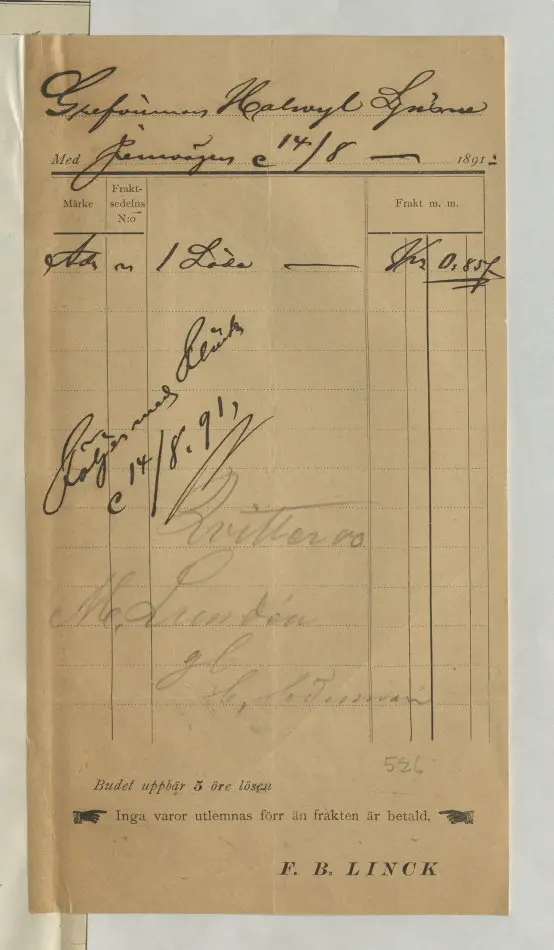 Grefvinnan Halwyl Ljusne
Med Jernvägen d 14/8 — 1891:
Märke
Frakt-
sedelns
N:o
Frakt m. m.
Adr 1 Låda — Kr 0:85
Följes med
d 14/8. 91,
Kvitteras
M. Lundén
gl
526
Budet uppbär 5 öre lösen
Inga varor utlemnas förr än frakten är betald.
F. B. LINCK